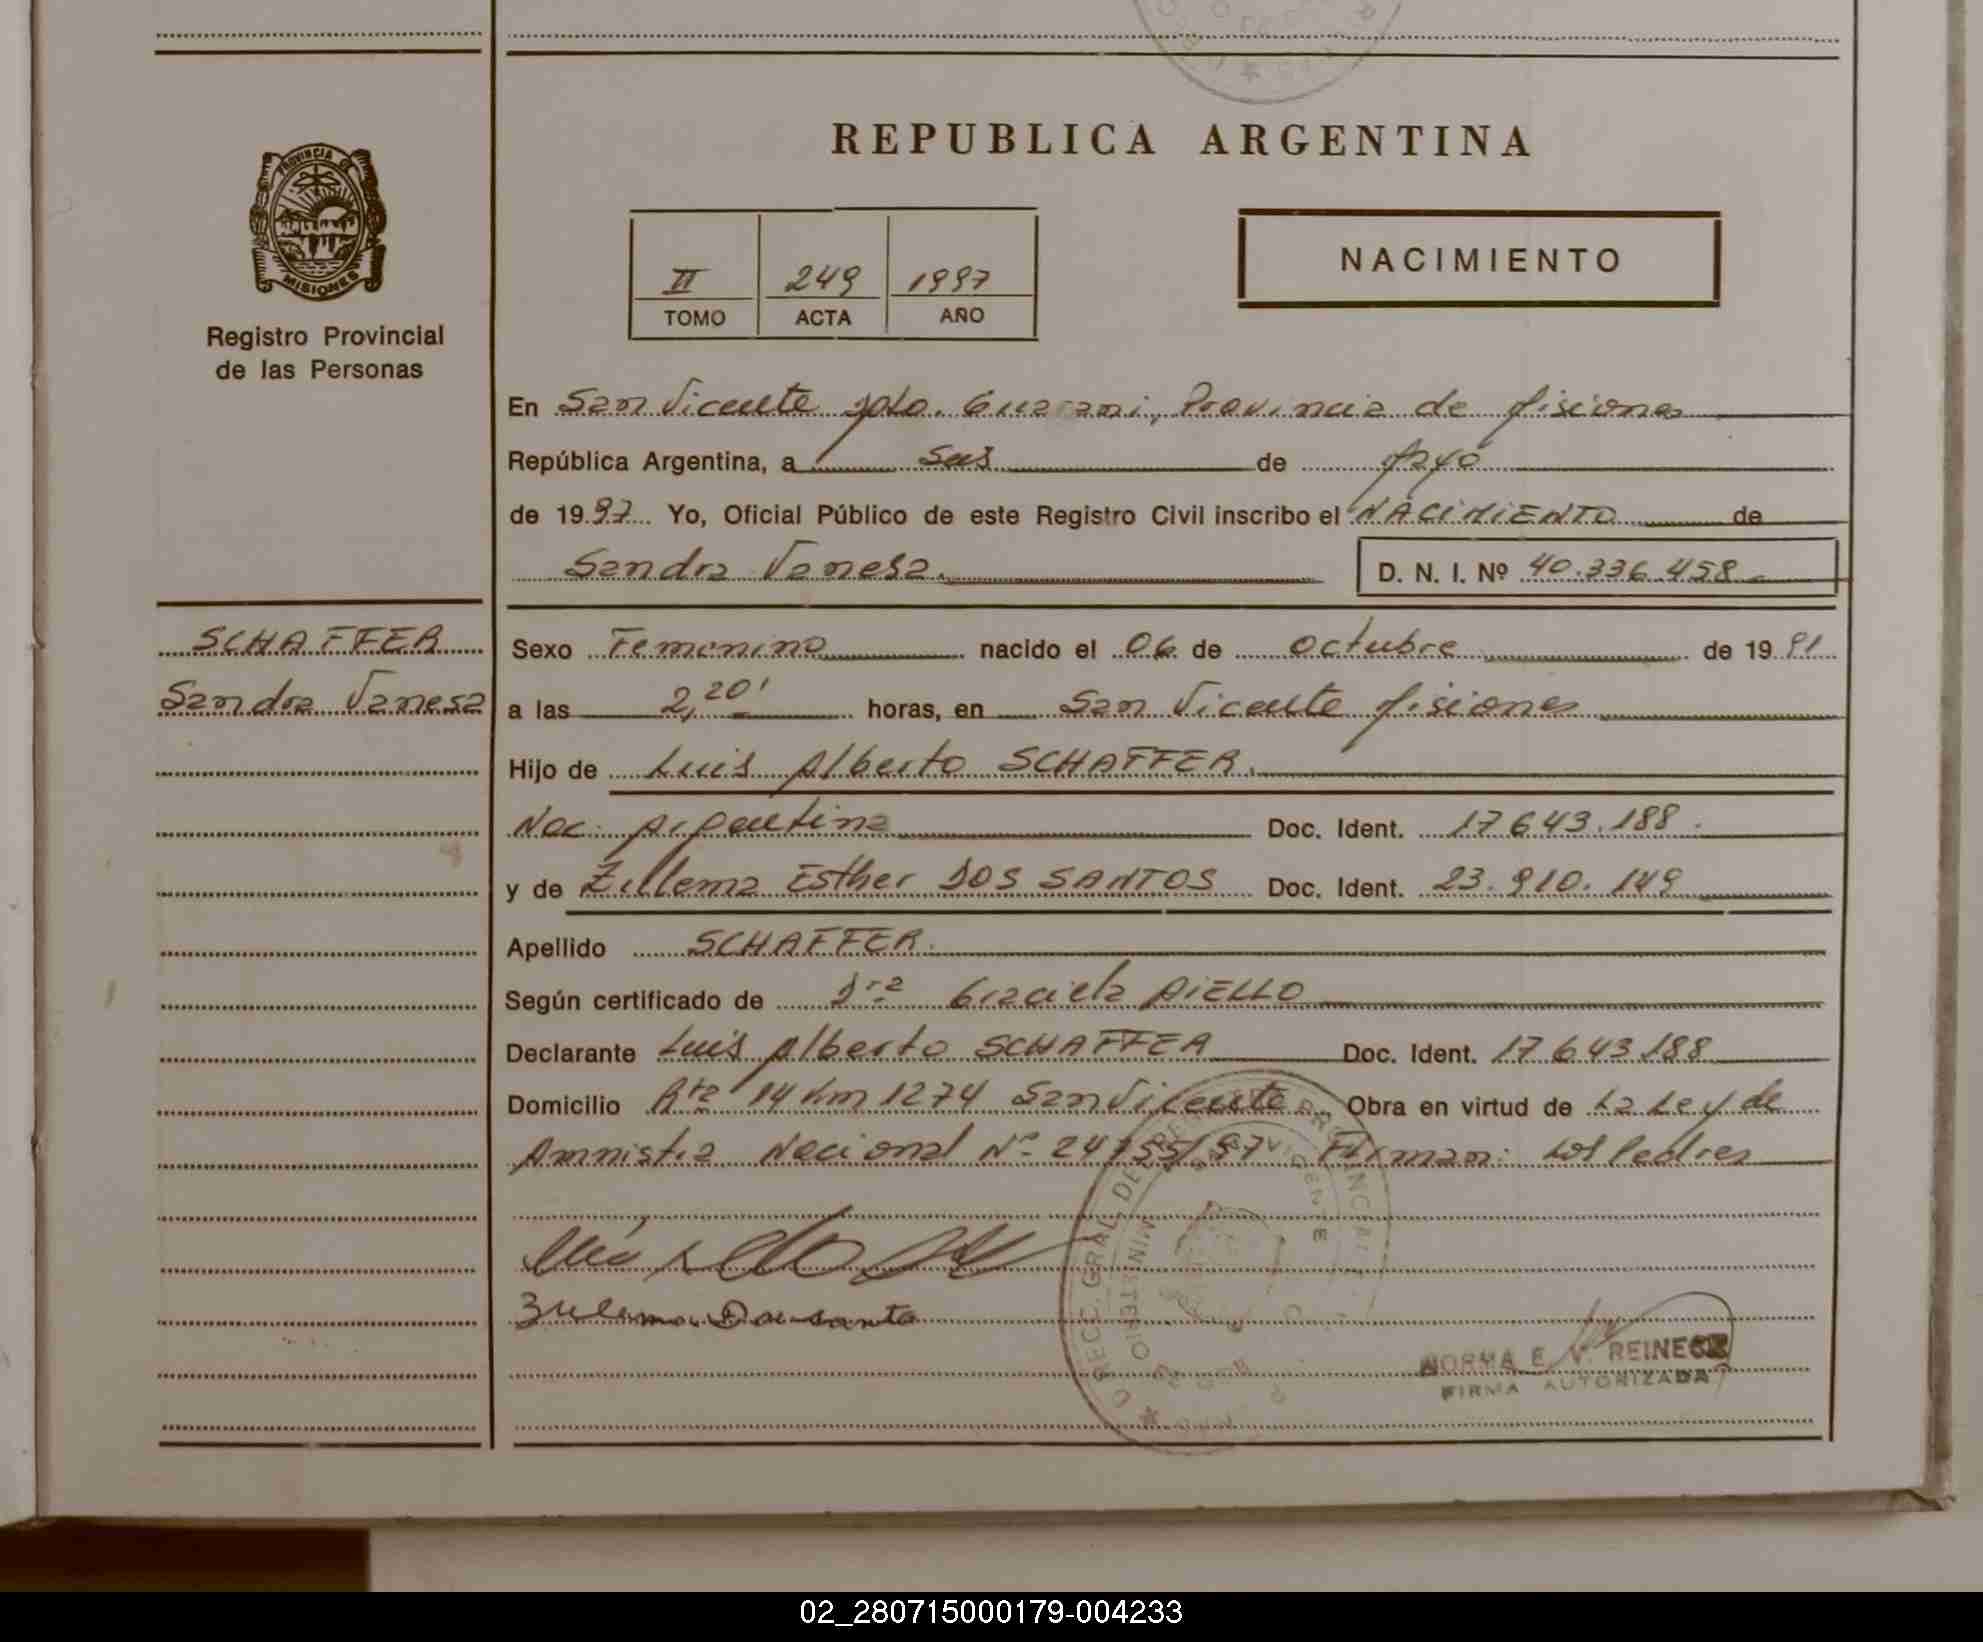 REPUBLICA ARGENTINA
PROVINCIA DE
MISIONES
Registro Provincial
de las Personas
II 249 1997
TOMO ACTA AÑO
NACIMIENTO
En San Vicente Dpto. Guarani, Provincia de Misiones
República Argentina, a Seis de Mayo
de 1997 Yo, Oficial Público de este Registro Civil inscribo el NACIMIENTO de
Sandra Vanesa. D. N. I. Nº 40.336.458
SCHAFFER
Sandra Vanesa
Sexo Femenino nacido el 06 de octubre de 1991
a las 2,20' horas, en San Vicente Misiones
Hijo de Luis Alberto SCHAFFER.
Nac. Argentina Doc. Ident. 17643.188.
y de Zullema Esther DOS SANTOS Doc. Ident. 23.910.149
Apellido SCHAFFER.
Según certificado de Dra Graciela AIELLO
Declarante Luis Alberto SCHAFFER Doc. Ident. 17643188
Domicilio Rta 14 Km 1274 San Vicente Obra en virtud de La Ley de
Amnistia Nacional Nº 24755/97 Firman: Los Padres
Zulema Dos santo
DIRECC. GRAL. DE
SAN VICENTE
MINISTERIO
NORMA E. V. REINECK
FIRMA AUTORIZADA
02_280715000179-004233